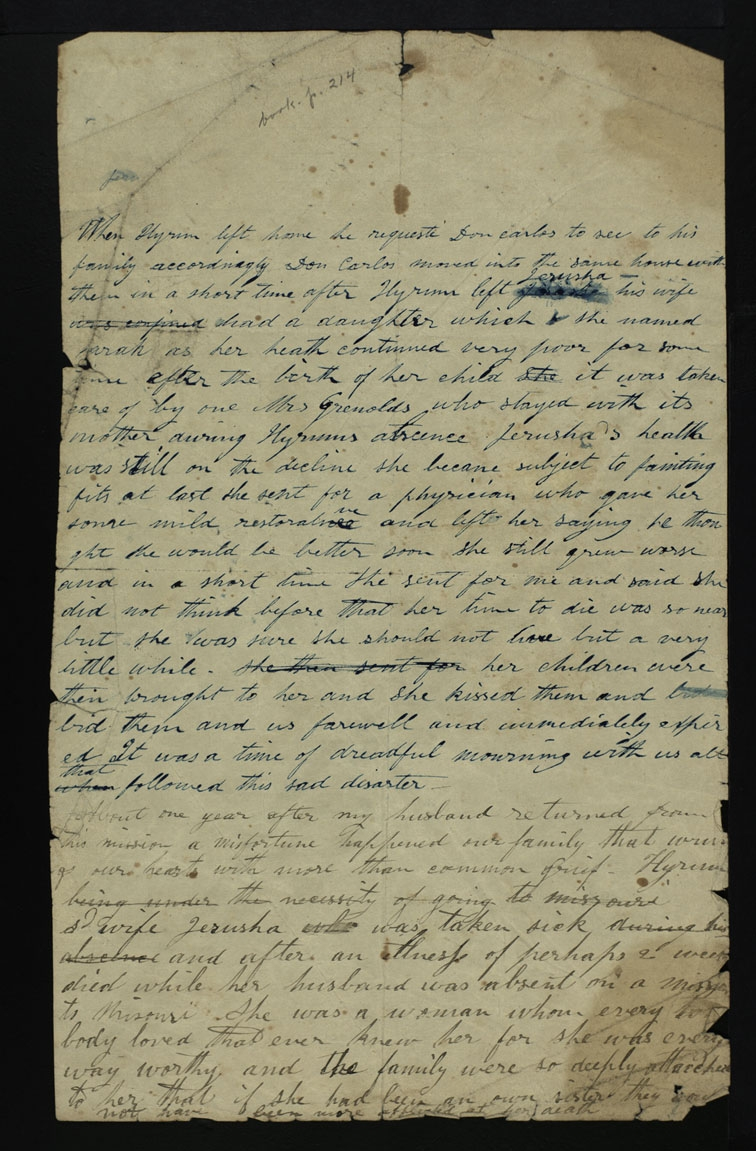 book. p. 214
When Hyrum left home he requestd Don Carlos to see to his
family accordnagly Don Carlos moved into the same house with
them in a short time after Hyrum left Jerusha his wife
was confined had a daughter which she named
sarah as her heath continued very poor for som
time after the birth of her child she it was taken
care of by one Mrs Grenolds who stayed with its
mother during Hyrums abscence Jerusha's health
was still on the decline she became subject to fainting
fits at last she sent for a physician who gave her
some mild restorative and left her saying he thou
ght she would be better soon she still grew worse
and in a short time she sent for me and said she
did not think before that her time to die was so near
but she was sure she should not live but a very
little while. she then sent for her children were
then brought to her and she kissed them and bid
bid them and us farewell and immediately expir
ed It was a time of dreadful mourning with us all
that when followed this sad disaster
About one year after my husband returned from
his mission a misfortune happened our family that wrun
g our hearts with more than common grief - Hyrum
being under the necessity of going to missouri
s wife Jerusha who was taken sick during his
abscence and after an illness of perhaps 2 weeks
died while her husband was absent on a mission
to Missouri She was a woman whom every
body loved that ever knew her for she was every
way worthy and the family were so deeply attached
to her that if she had been an own sister they could
not have been more afflicted at her death